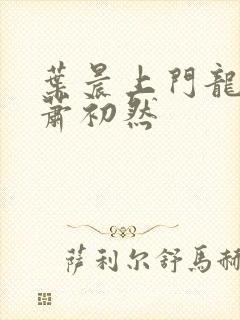 葉晨上門龍
蕭初然
薩利尔舒馬赫